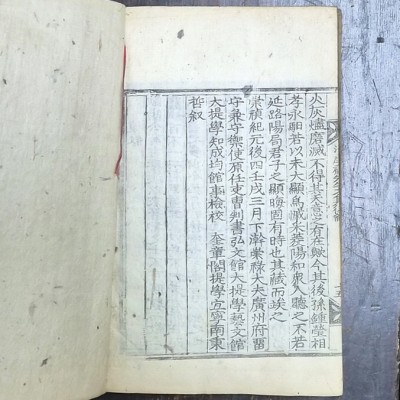 火灰燼磨滅不得其天意之有在歟今其後孫鍾瑩相
孝永畊若以未大顯爲戚朱菱陽和衆人聽之不若
延路陽局君子之顯晦固有時也其藏而埃之
崇禎紀元後四壬戌三月下澣崇祿大夫廣州府留
守兼守禦使原任吏曹判書弘文館大提學藝文館
大提學知成均館事檢校 奎章閣提學宜寧南秉
哲叙